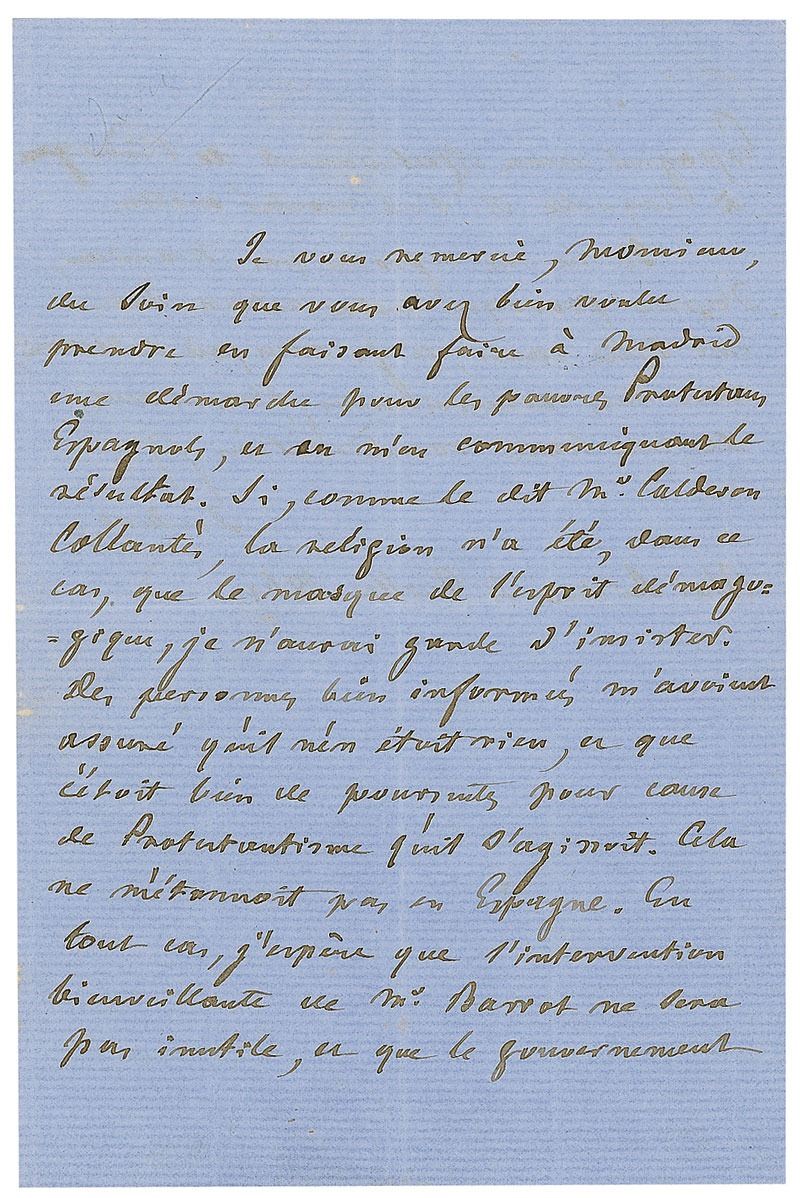 Je vous remercie, Monsieur,
du soin que vous avez bien voulu
prendre en faisant faire à Madrid
une démarche pour les pauvres Protestans
Espagnols, et en m'en communiquant le
résultat. Si, comme le dit Mr. Calderon
Collantès, la religion n'a été, dans ce
cas, que le masque de l'esprit démago=
=gique, je n'aurai garde d'insister.
Des personnes bien informées m'avoient
assuré qu'il n'en étoit rien, et que
c'étoit bien de poursuites pour cause
de Protestantisme qu'il s'agissoit. Cela
ne m'étonnoit pas en Espagne. En
tout cas, j'espère que l'intervention
bienveillante de Mr. Barrot ne sera
pas inutile, et que le gouvernement